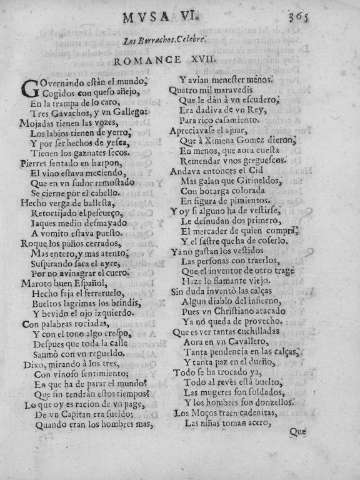 MVSA VI.
365
Los Borrachos. Celebre.
ROMANCE XVII.
GOvernando estàn el mundo,
Cogidos con queso añejo,
En la trampa de lo caro,
Tres Gavachos, y vn Gallego:
Mojadas tienen las vozes,
Los labios tienen de yerro,
Y por ser hechos de yesca,
Tienen los gaznates secos.
Pierres sentado en harpon,
El vino estava meciendo,
Que en vn sudor remostado
Se cierne por el cabello.
Hecho verga de ballesta,
Retortijado el pescueço,
Jaques medio desmayado
A vomito estava puello.
Roque los puños cerrados,
Mas entero, y mas atento,
Suspirando saca el ayre,
Por no avinagrar el cuero.
Maroto buen Español,
Hecho faja el ferreruelo,
Bueltos lagrimas los brindis,
Y bevido el ojo izquierdo.
Con palabras rociadas,
Y con el tono algo crespo,
Despues que toda la calle
Saumò con vn regueldo.
Dixo, mirando à los tres,
Con vinoso sentimiento;
En que ha de parar el mundo?
Que fin tendràn estos tiempos?
Lo que oy es racion de vn page,
De vn Capitan era sueldo;
Quando eran los hombres mas,
Y avian menester menos.
Quatro mil maravedis
Que le dàn à vn escudero,
Era dadiva de vn Rey,
Para rico casamiento.
Apreciavase el ajuar,
Que à Ximena Gomez dieron,
En menos, que aora cuesta
Remendar vnos greguescos.
Andava entonces el Cid
Mas galan que Girineldos,
Con botarga colorada
En figura de pimientos.
Y oy si alguno ha de vestirse,
Le desnudan dos primero,
El mercader de quien compra,
Y el sastre que ha de coserlo.
Ya no gastan los vestidos
Las personas con traerlos,
Que el inventor de otro trage
Haze lo flamante viejo.
Sin duda inventò las calças
Algun diablo del infierno,
Pues vn Christiano atacado
Ya no queda de provecho.
Que es ver tantas cuchilladas
Aora en vn Cavallero,
Tanta pendencia en las calças,
Y tanta paz en el dueño.
Todo se ha trocado ya,
Todo al revès està buelto,
Las mugeres son soldados,
Y los hombres son donzellos.
Los Moços traen cadenitas,
Las niñas toman acero,
Que